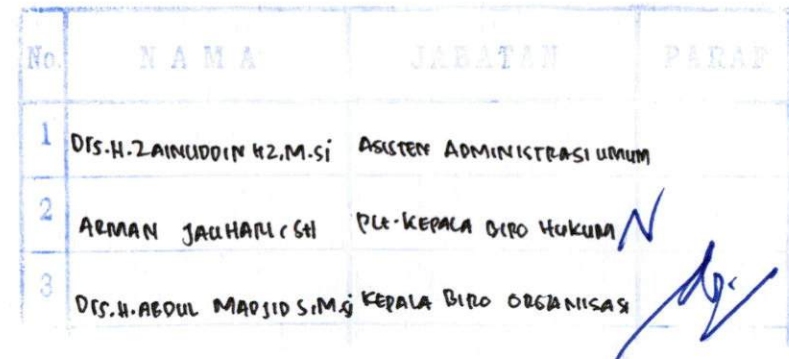 No. NAMA JABATAN PARAF
1 Drs.H.ZAINUDDIN HZ,M.Si ASISTEN ADMINISTRASI UMUM
2 ARMAN JAUHARI, SH PLt.KEPALA BIRO HUKUM
3 Drs.H.ABDUL MADJID S,M.Si KEPALA BIRO ORGANISASI